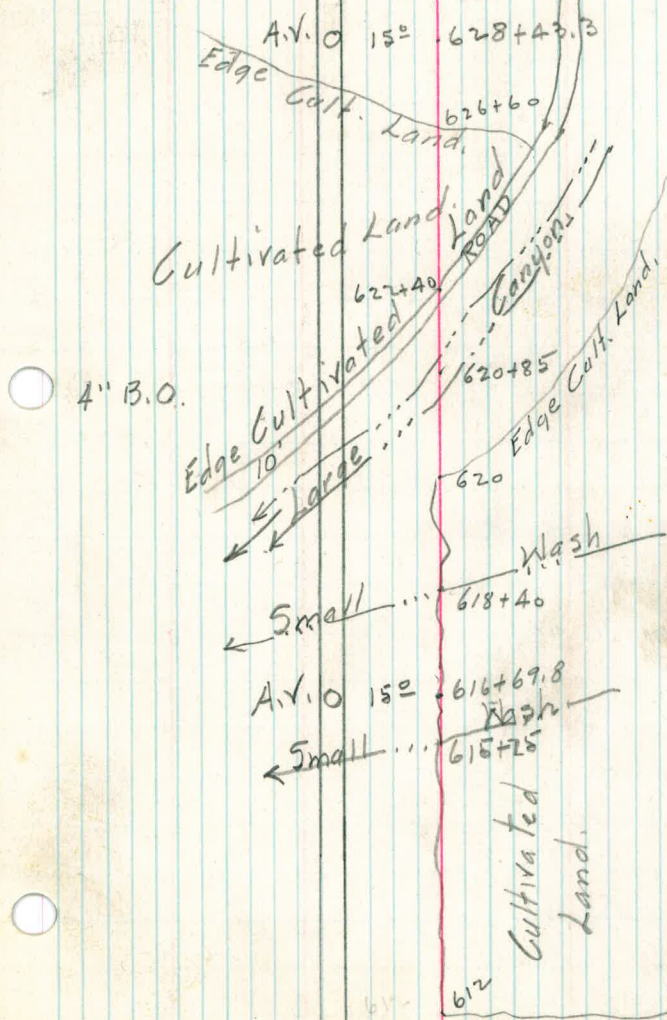 A.V. O 15º 628+43.3
Edge Cult. Land.
626+60
Cultivated Land.
Edge Cultivated Land
ROAD
622+40
Large Canyon
620+85
Edge Cult. Land.
4" B.O.
10'
620
Small Wash
618+40
A.V. O 15º 616+69.8
Small Wash
615+25
Cultivated
Land.
612